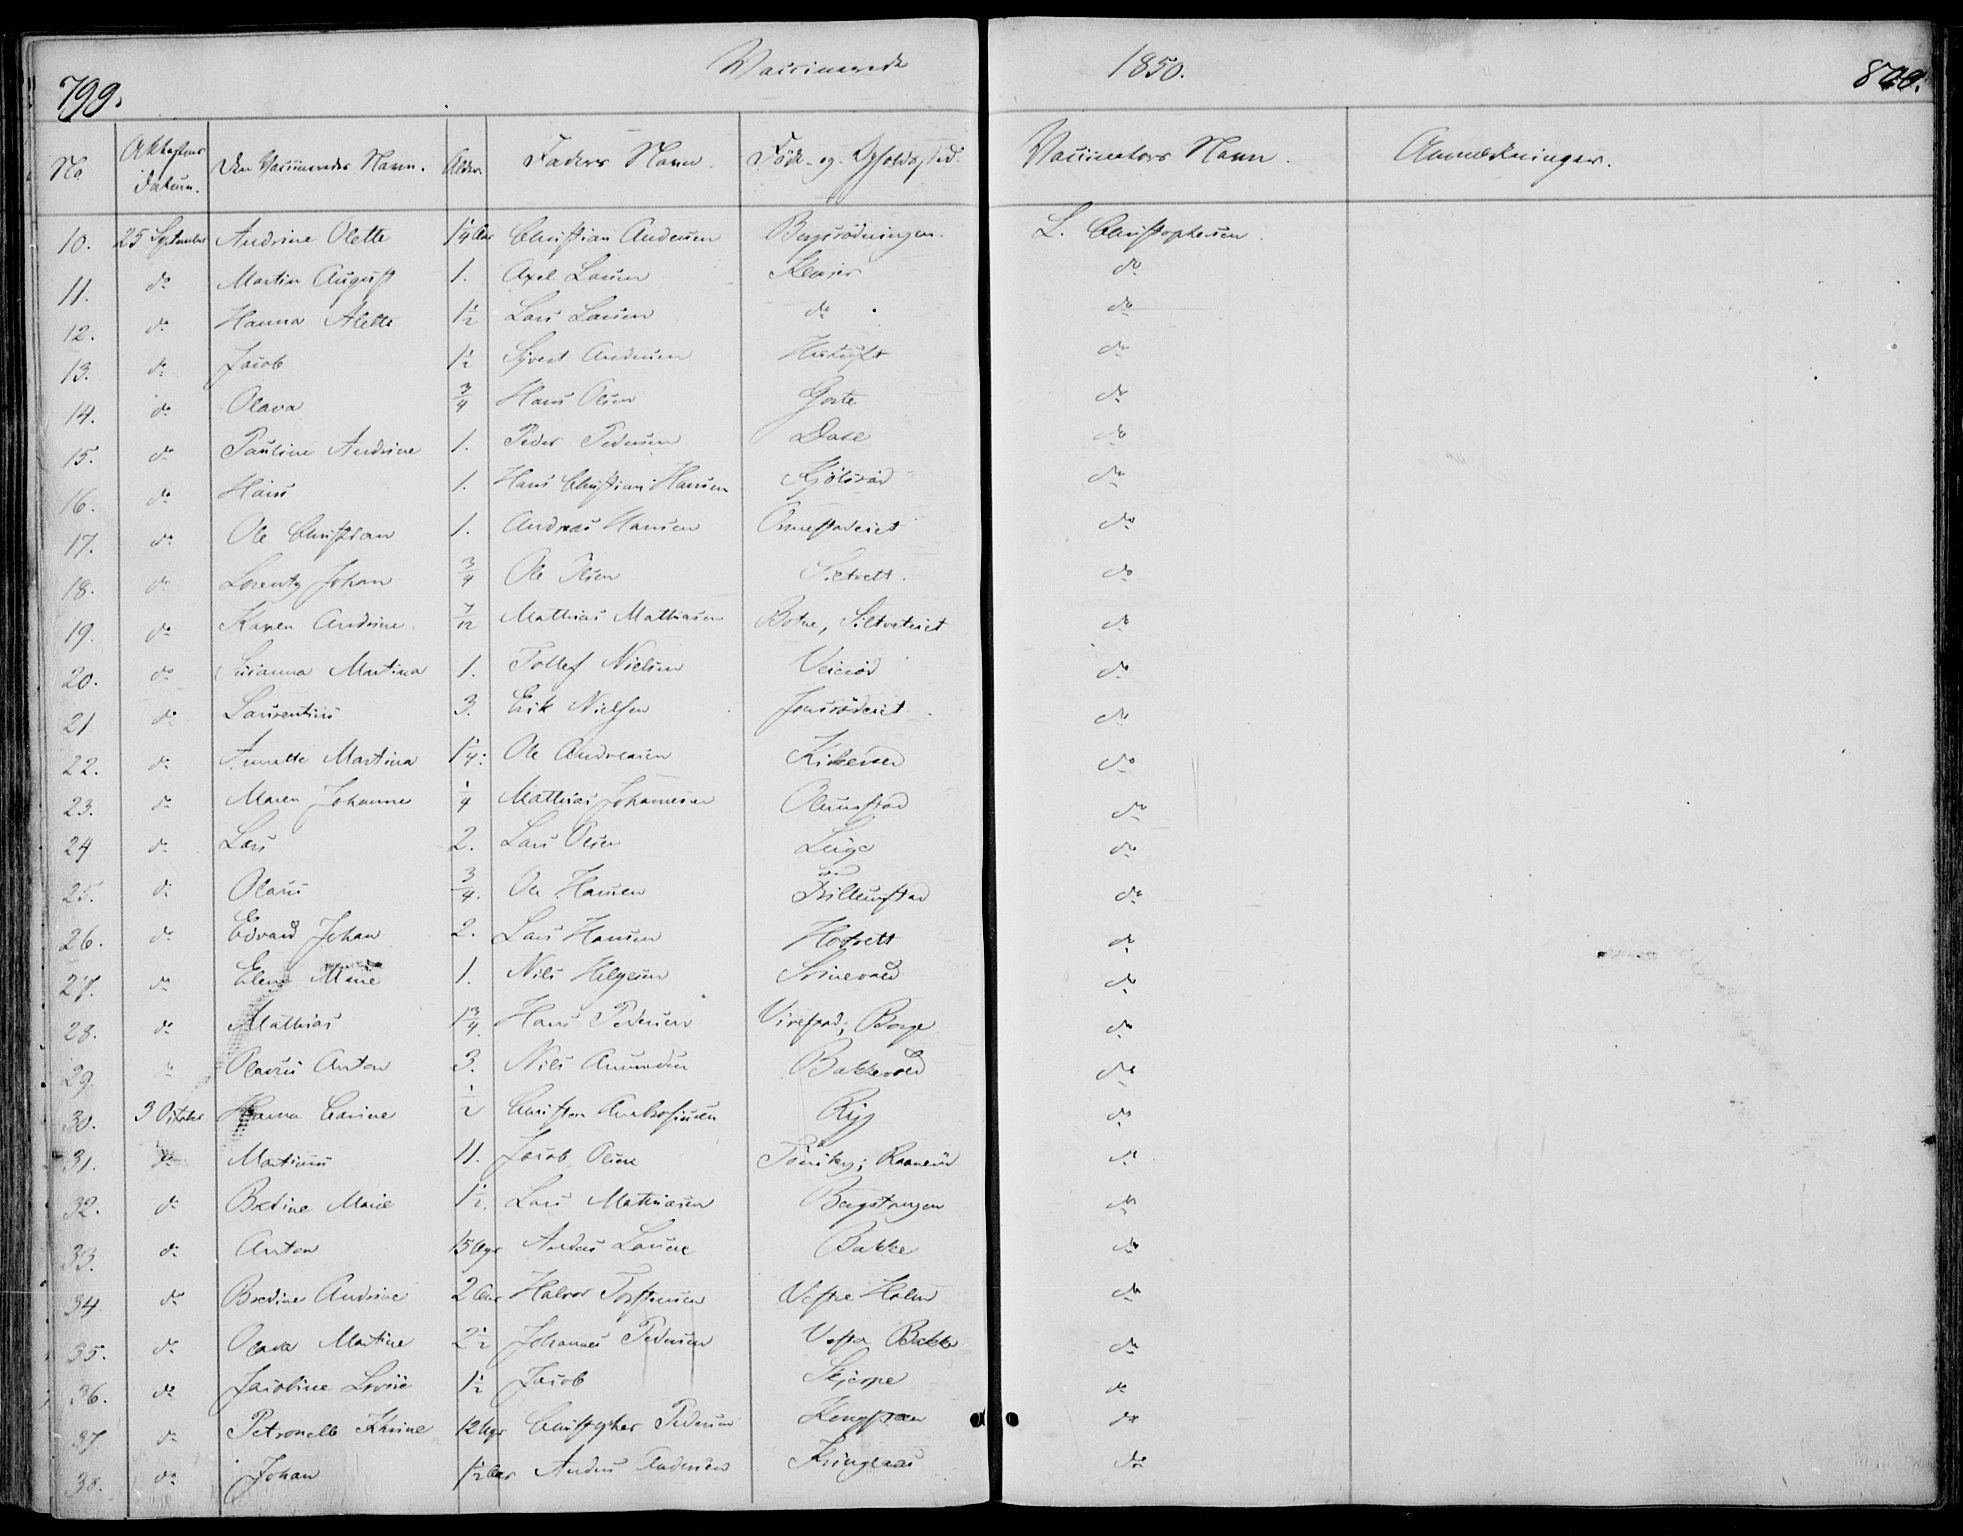 Vaccinerede 1850.
799. 800.
No Attestens Datum. Den Vaccineredes Navn. Alder. Faders Navn. Føde- og Opholdssted. Vaccinators Navn. Anmærkninger.
10. 25 September Andrine Olette 1¼ Aar Christian Andersen Bergsrødningen. L. Christophersen
11. do Martin August 1. Axel Larsen do
12. do Hanna Alette 1½ Lars Larsen do do
13. do Jacob 1½ Syvert Andersen do
14. do Olava ¾ Hans Olsen do
15. do Pauline Andrine 1. Peder Pedersen do
16. do Hans 1. Hans Christian Hansen do
17. do Ole Christian 1. Andreas Hansen do
18. do Lorentz Johan ¾ Ole Olsen do
19. do Karen Andrine 7/12 Mathias Mathiasen Botne, do
20. do Susanna Martina 1. Tollef Nielsen do
21 do Laurentius 3. Erik Nielsen do
22. do Annette Martina 1¼ Ole Andreasen do
23. do Maren Johanne ¼ Mathias Johannesen do
24 do Lars 2. Lars Olsen do
25. do Olaus ¾. Ole Hansen do
26. do Edvard Johan 2. Lars Hansen Hortvett do
27. do Elen Marie 1. Nils Helgesen do
28. do Mathias 1¾. Hans Pedersen do
29. do Olaus Anton 3. Nils Amundsen do
30. 3 October Hanna Carine ½ do
31. do Martinus 11. Jacob Olsen do
32. do Bredine Marie 1½. Lars Mathiasen do
33. do Anton 15 Uger Anders Larsen Bakke do
34 do Bredine Andrine 2 Aar Halvor Torstensen Vestre Holm do
35. do Olava Martine 2½ Johannes Pedersen Vestre Bakke do
36. do Jacobine Lovise 1½ Jacob Skjerpe do
37 do Petronelle Karine 12 Uger Christopher Pedersen do
38. do Johan 1½ Aar Anders Andersen do